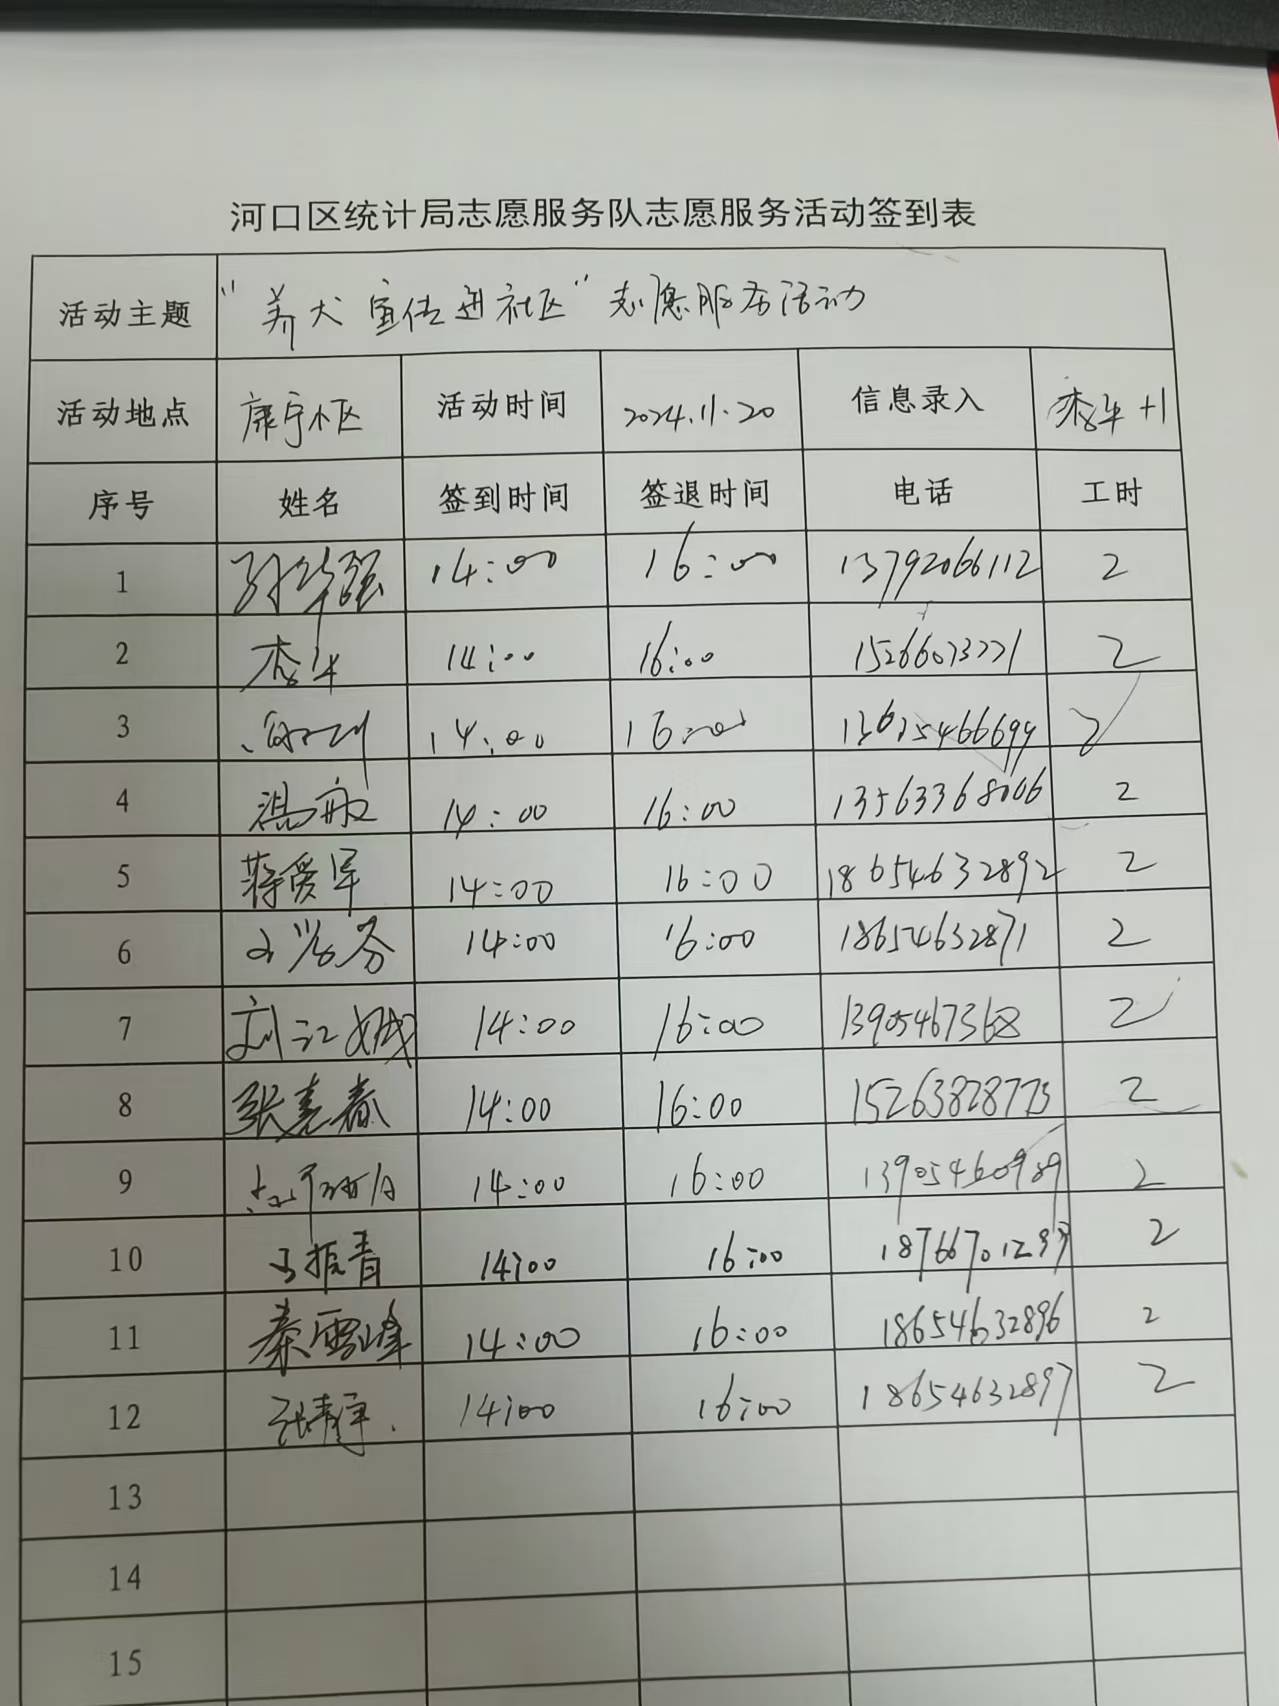 河口区统计局志愿服务队志愿服务活动签到表
活动主题 "养犬宣传进社区"志愿服务活动
活动地点 康宁小区 活动时间 2024.11.20 信息录入 +1
序号 姓名 签到时间 签退时间 电话 工时
1 孙华强 14:00 16:00 13792066112 2
2 14:00 16:00 15266073771 2
3 14:00 16:00 2
4 温敏 14:00 16:00 13563368006 2
5 蒋爱军 14:00 16:00 18654632892 2
6 14:00 16:00 18654632871 2
7 刘江城 14:00 16:00 13905467368 2
8 张志春 14:00 16:00 15263828773 2
9 14:00 16:00 13905460989 2
10 王振青 14:00 16:00 18766701297 2
11 秦雪峰 14:00 16:00 18654632896 2
12 张静宇 14:00 16:00 18654632897 2
13
14
15